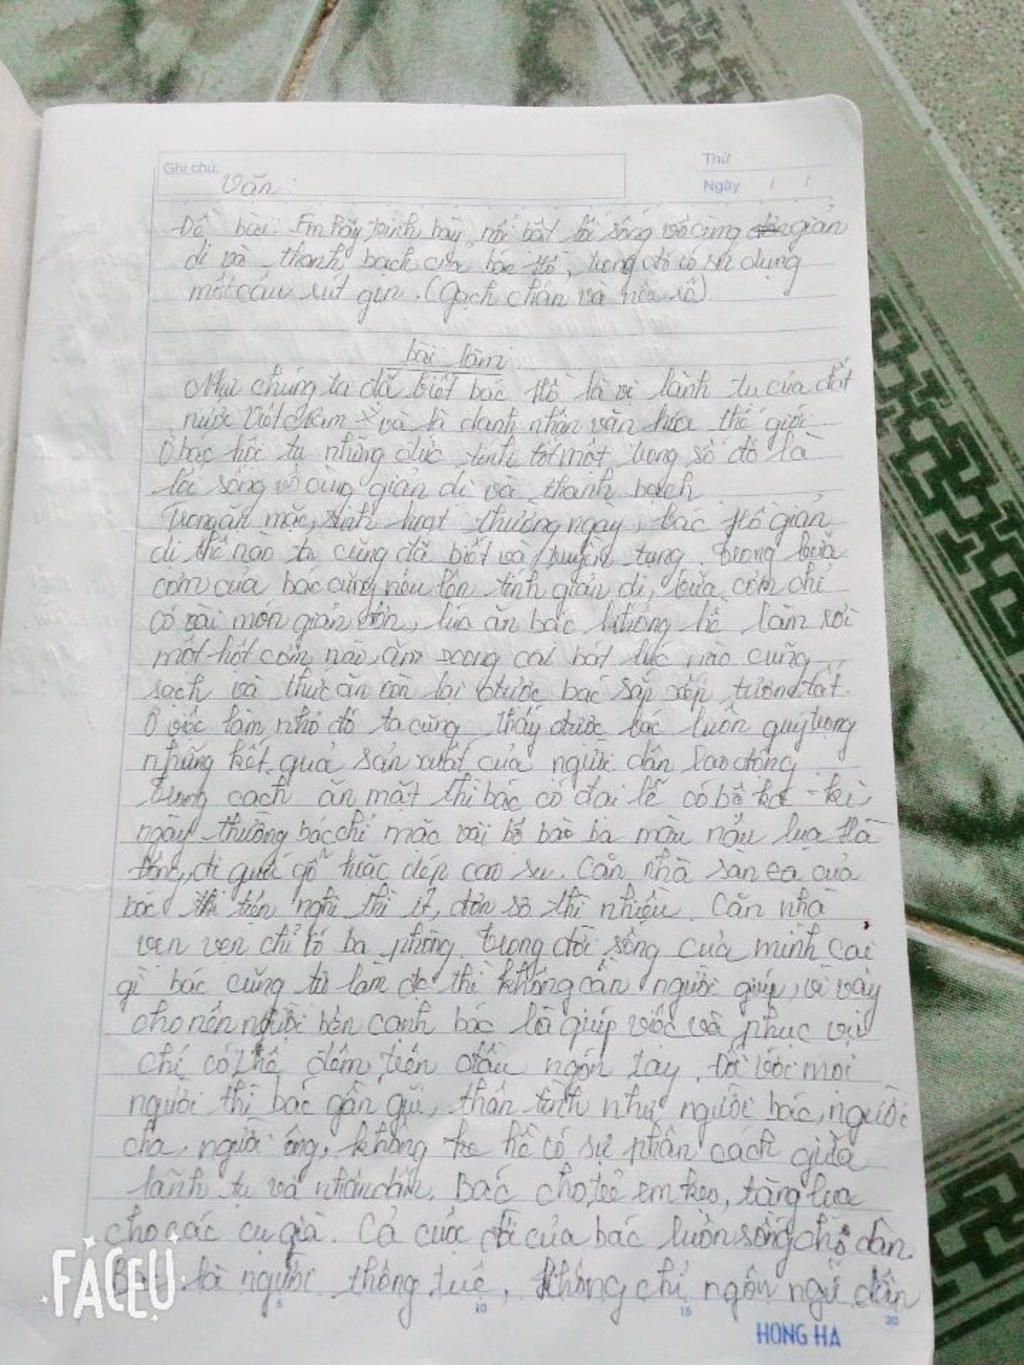 Ghi chú:
Văn
Thứ
Ngày / /
Đề bài: Em hãy trình bày, nổi bật lối sống vô cùng giản
dị và thanh bạch của bác Hồ, trong đó có sử dụng
một câu rút gọn. (Gạch chân và nêu rõ)
bài làm:
Như chúng ta đã biết bác Hồ là vị lãnh tụ của đất
nước Việt Nam và là danh nhân văn hóa thế giới
Ở bác hội tụ những đức tính tốt một trong số đó là
lối sống vô cùng giản dị và thanh bạch
Trong ăn mặc, sinh hoạt thường ngày, bác Hồ giản
dị thế nào ta cũng đã biết và truyền tụng. trong bữa
cơm của bác cũng nêu lên tính giản dị, bữa cơm chỉ
có vài món giản đơn, lúc ăn bác không hề làm rơi
một hột cơm nào, ăn xong cái bát lúc nào cũng
sạch và thức ăn còn lại được bác sắp xếp tươm tất.
Ở việc làm nhỏ đó ta cũng thấy được bác luôn quý trọng
những kết quả sản xuất của người dân lao động
trong cách ăn mặt thì bác có đại lễ có bộ ka-ki,
ngày thường bác chỉ mặc vài bộ bào ba màu nâu lụa Hà
đông, đi guốc gỗ hoặc dép cao su. Căn nhà sàn của
bác tiện nghi thì ít, đơn sơ thì nhiều. Căn nhà
vẹn vẹn chỉ có ba phòng. trong đời sống của mình cái
gì bác cũng tự làm đc thì không cần người giúp, vì vậy
cho nên người bên cạnh bác là giúp việc và phục vụ
chỉ có thể đếm trên đầu ngón tay. Đối với mọi
người thì bác gần gũi, thân tình như người bác, người
cha, người ông, không hề có sự phân cách giữa
lãnh tụ và nhân dân. Bác cho trẻ em kẹo, tặng lụa
cho các cụ già. Cả cuộc đời của bác luôn sống cho dân.
Bác là người thông tuệ, không chỉ ngôn ngữ dân
5 10 15 20
HONG HA
FACEU